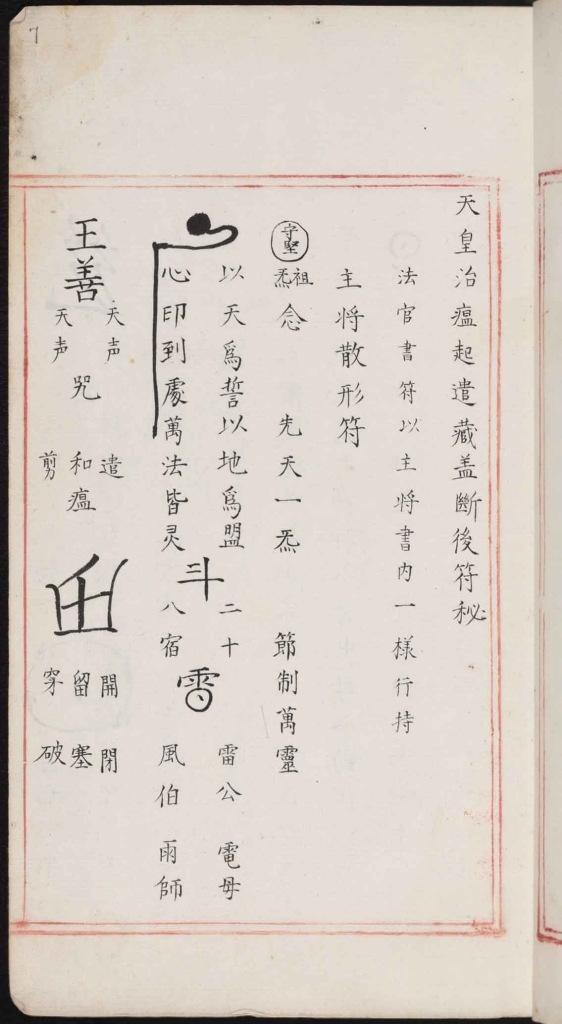 天皇治瘟起遣藏盖斷後符秘
法官書符以主將書内一樣行持
主將散形符
守堅
祖炁念 先天一炁 節制萬靈
以天爲誓以地爲盟 二十 雷公 電母
心印到處萬法皆灵 八宿 風伯 雨師
斗
王善
天声 天声
咒
遣 和瘟 剪
開 留 穿
閉 塞 破
7